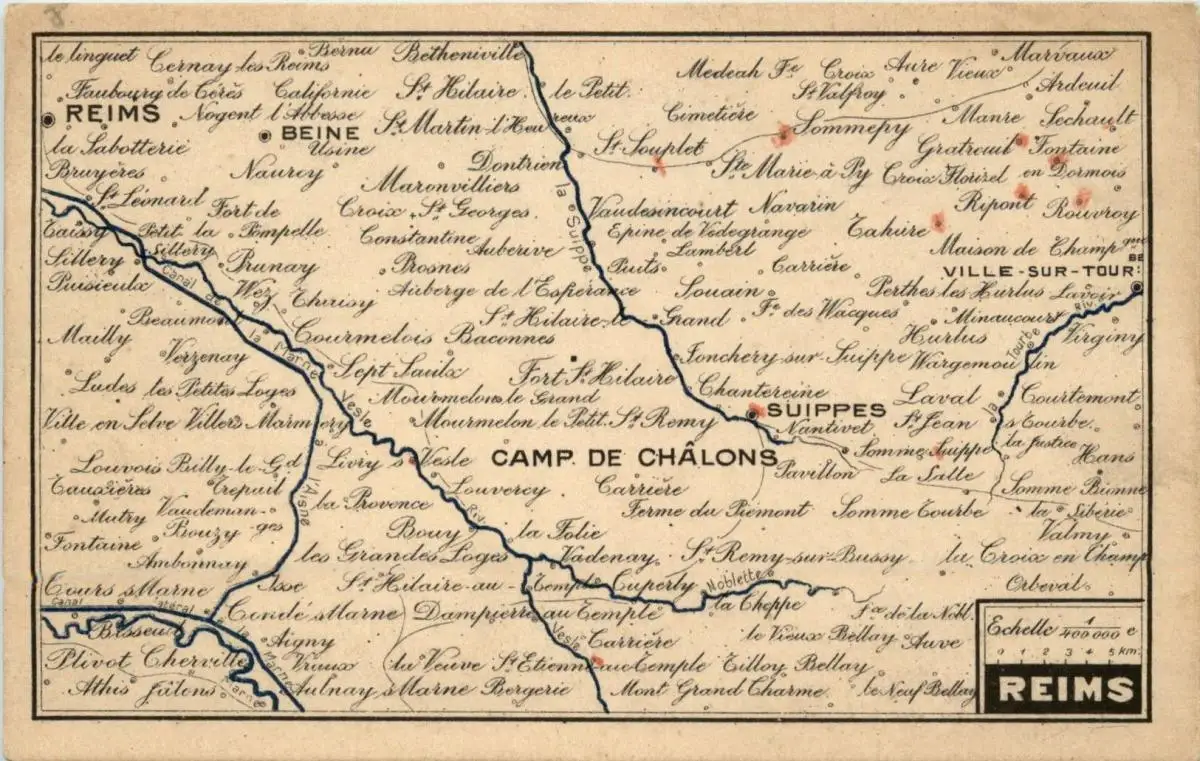 le Linguet Cernay-les Reims Bernu Betheniville Marvaux
Medeah Fe Croix Aure Vieux
Faubourg de Cérès Californie St Hilaire le Petit St Valfroy Ardeuil
REIMS Nogent l'Abbesse St Martin-l'Heureux Cimetière Sommepy Manre Sechault
BEINE
la Sabotterie Usine St Souplet Gratreuil Fontaine
Bruyères Nauroy Dontrien Ste Marie à Py Croix Flouzel en Dormois
Maronvilliers
St Léonard Fort de Croix St Georges Vaudesincourt Navarin Ripont Rouvroy
Taissy Petit la Pompelle Constantine Epine de Vedegrange Tahure
Sillery Auberive Lambert Maison de Champque
Sillery Prunay Prosnes la Suippe Puits Carrière VILLE-SUR-TOUR:
Puisieulx Canal de la Marne Wez Thuisy Auberge de l'Espérance Souain Perthes les Hurlus Lavoir
Beaumont St Hilaire-le Grand Fe des Wacques Minaucourt Riv
Mailly Courmelois Baconnes Hurlus Virginy
Verzenay Sept Saulx Jonchery-sur-Suippe Wargemoulin la Tourbe
Ludes les Petites Loges Fort St Hilaire Chantereine Laval Courtemont
Mourmelon le Grand SUIPPES
Ville en Selve Villers Marmery Vesle Mourmelon le Petit St Remy Nantivet St Jean s Tourbe
Louvois Billy-le-Gd Livry s Vesle CAMP DE CHÂLONS Somme-Suippe la Justice Hans
Pavillon La Salle
Taussières Trepail l'Aisne Louvercy Carrière Somme Bionne
Mutry Vaudemanges la Provence Ferme du Piémont Somme Tourbe la Siberie
Bouzy Bouy Riv la Folie Valmy
Fontaine les Grandes Loges Vadenay St Remy-sur-Bussy la Croix en Champ
Ambonnay
Tours s Marne Isse St Hilaire-au-Temple Cuperly Noblette Orbeval
Canal latéral Condé s Marne Dampierre au Temple la Cheppe Fe de la Nobl.
Bisseu Aigny Vesle Carrière le Vieux Bellay Auve
Plivot Cherville Vraux la Veuve St Etienne au Temple Tilloy Bellay
Athis Jâlons Marne Aulnay s Marne Bergerie Mont Grand Charme le Neuf Bellay
Echelle 1/400000 e
0 1 2 3 4 5 km
REIMS